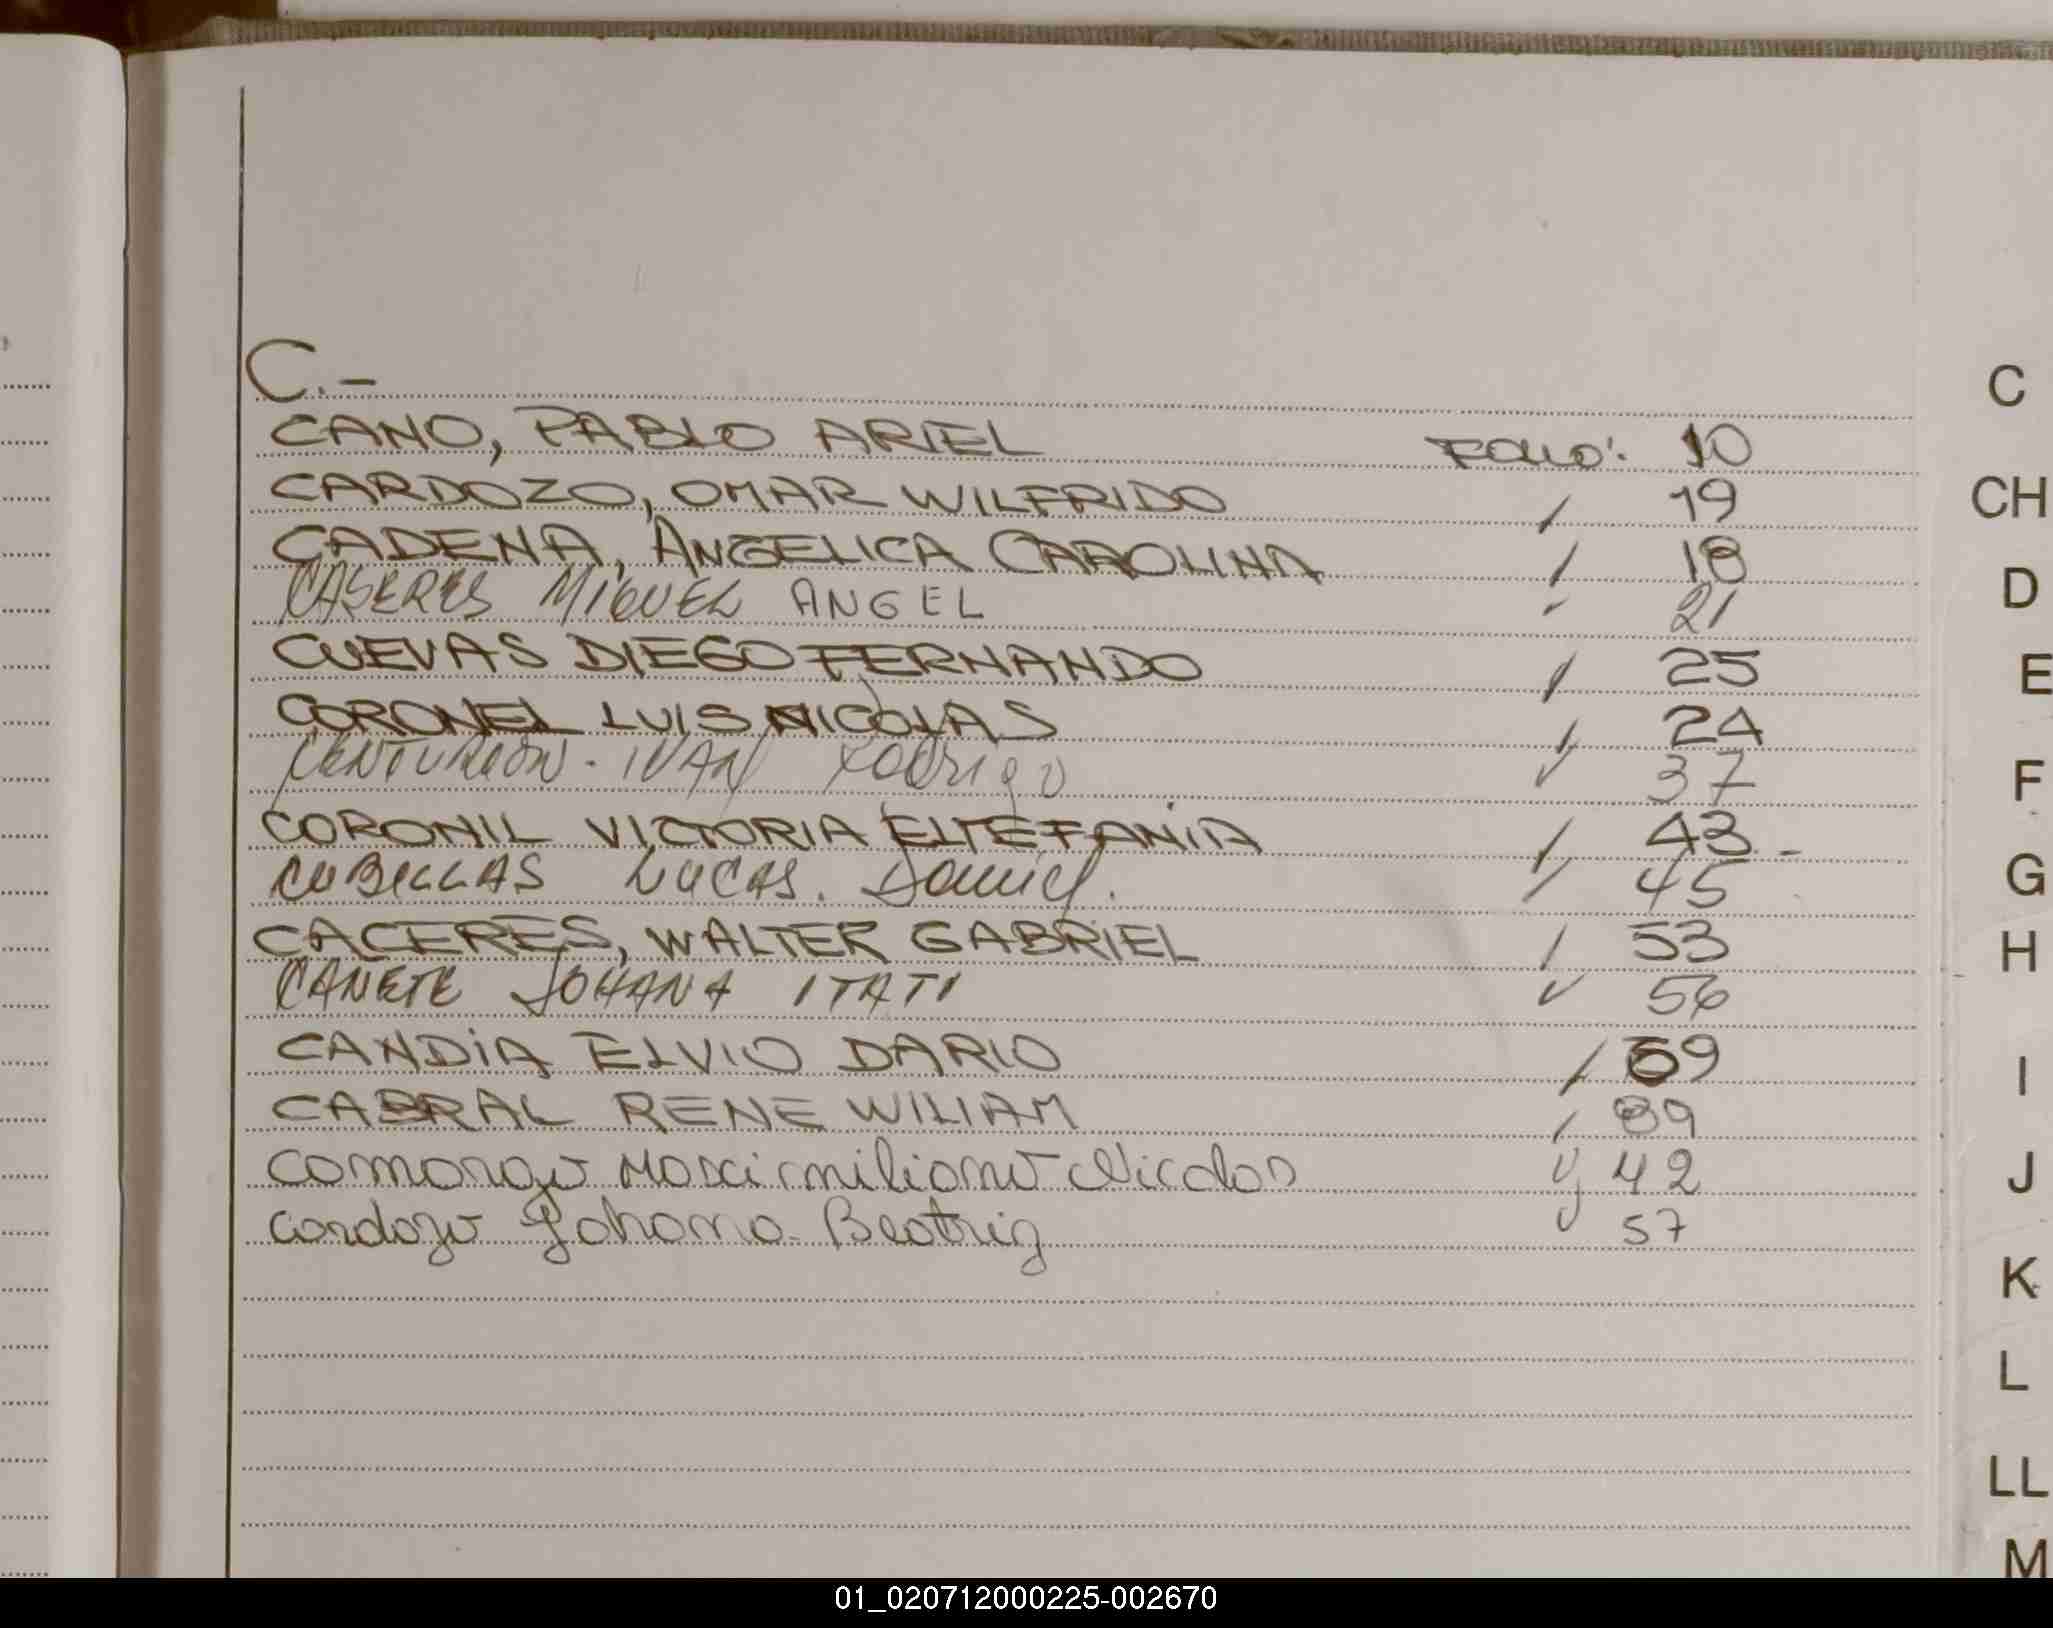 C.-
CANO, PABLO ARIEL FOLIO: 10
CARDOZO, OMAR WILFRIDO 19
CADENA, ANGELICA CAROLINA 18
CASERES MIGUEL ANGEL 21
CUEVAS DIEGO FERNANDO 25
CORONEL LUIS NICOLAS 24
CENTURION. IVAN Rodrigo 37
CORONIL VICTORIA ELTEFANIA 43-
CUBILLAS LUCAS. Daniel. 45
CACERES, WALTER GABRIEL 53
CANETE JOHANA ITATI 56
CANDIA ELVIO DARIO 69
CABRAL RENE WILIAM 89
Camargo Maximiliano Nicolas 42
Cardozo Johana Beatriz 57
C
CH
D
E
F
G
H
I
J
K
L
LL
M
01_020712000225-002670